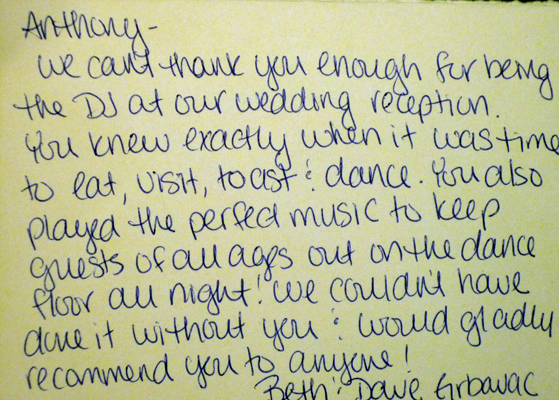 Anthony-
We can't thank you enough for being
the DJ at our wedding reception.
You knew exactly when it was time
to eat, visit, toast & dance. You also
played the perfect music to keep
guests of all ages out on the dance
floor all night! We couldn't have
done it without you & would gladly
recommend you to anyone!
Beth & Dave Grbavac